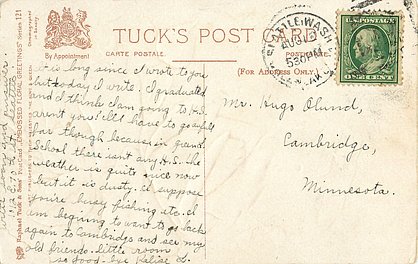 TUCK'S POST CARD
CARTE POSTALE. POSTKARTE.
(For Address Only.)
By Appointment
Raphael Tuck & Sons' Post Card "EMBOSSED FLORAL GREETINGS" Series 121
SEATTLE, WASH.
AUG
530PM
U.S. POSTAGE
ONE CENT
Mr. Hugo Olund,
Cambridge,
Minnesota.
It is long since I wrote to you
but today I write. I graduated
and I think I am going to H.S.
arent you? I'll have to go
me though because in grand
School there isn't any H.S. The
weather is quite nice now
but it is dusty. I suppose
you're busy fishing etc. I
am begining to want to go back
again to Cambridge and see my
old friends. little room
so Good-bye